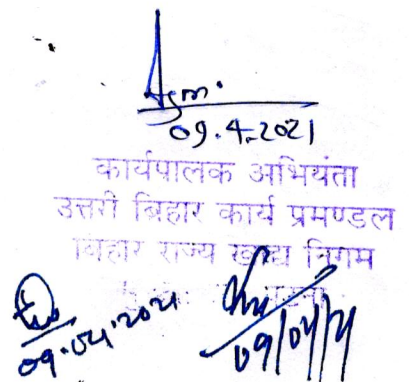 09.4.2021
कार्यपालक अभियंता
उत्तरी बिहार कार्य प्रमण्डल
बिहार राज्य खाद्य निगम
पटना
09.04.2021
09/04/21